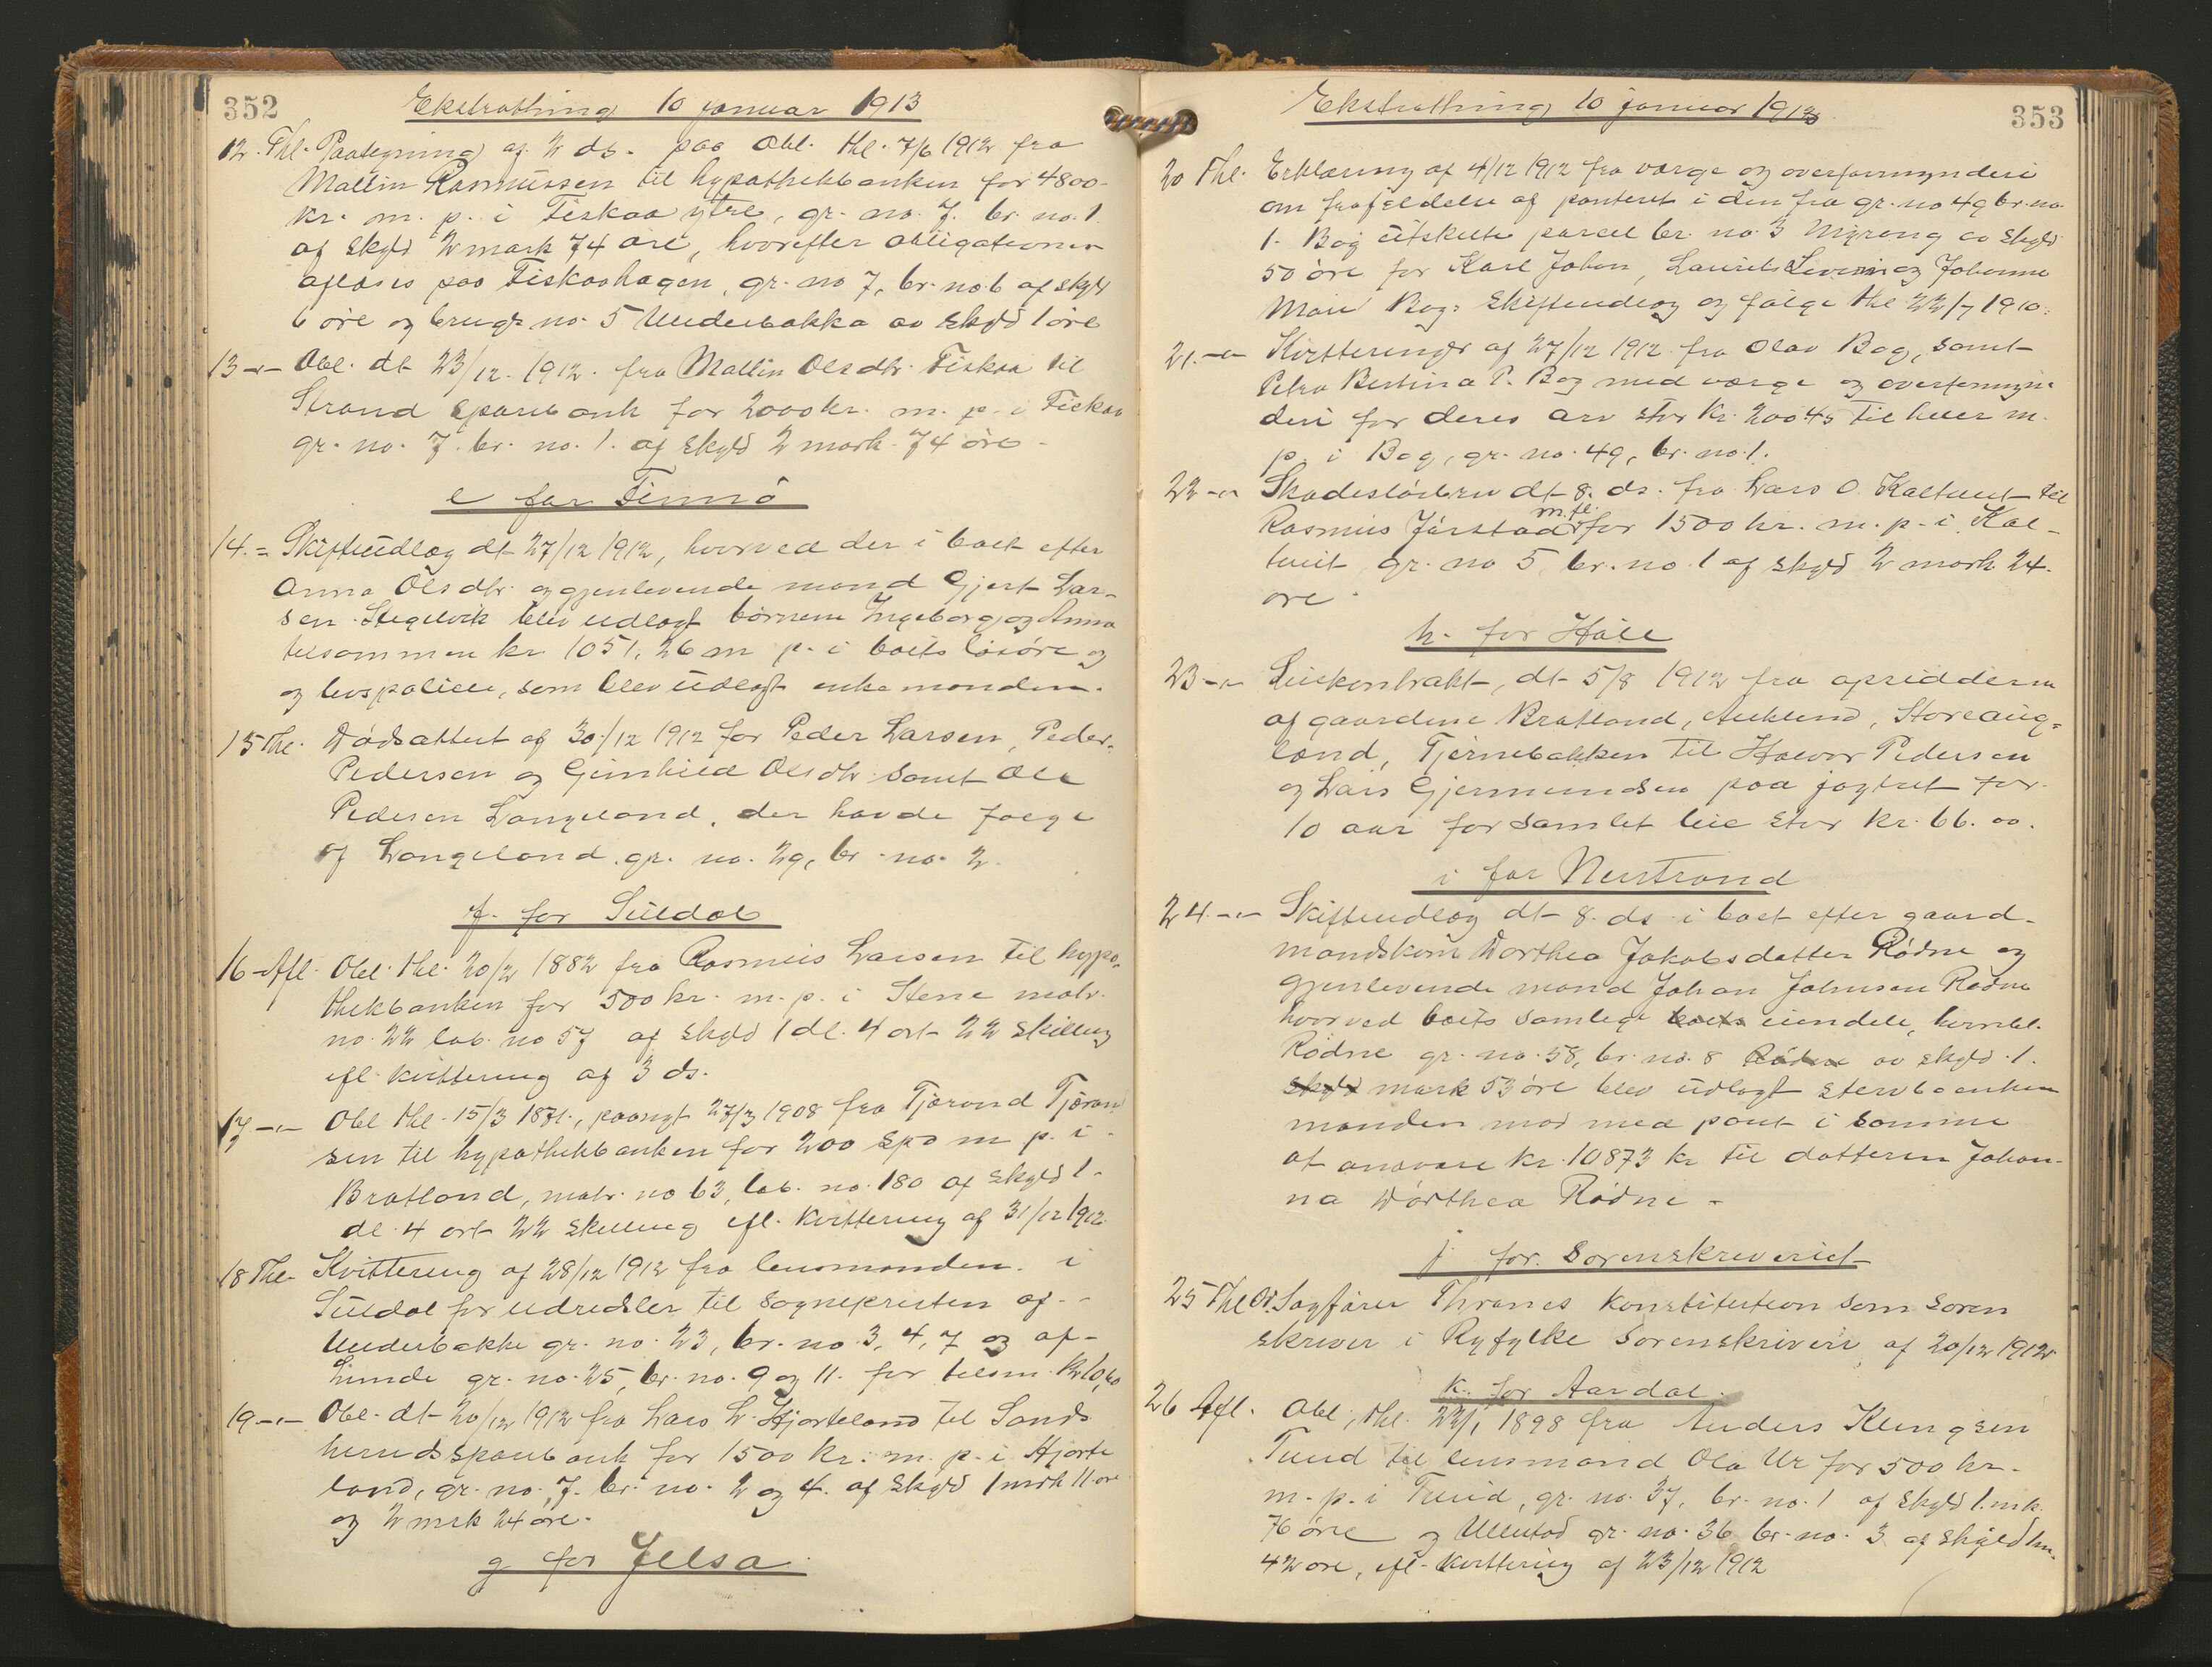 352
Ekstrathing 10 januar 1913
12. Thl. Paategning af 2 ds. paa Obl. thl. 7/6 1912 fra
Mallin Rasmussen til hypothekbanken for 4800-
kr. m. p. i Fiskaa ytre, gr. no. 7. br. no. 1.
af skyld 2 mark 74 øre, hvorefter obligationen
aflæses paa Fiskaahagen, gr. no 7, br. no. 6 af skyld
6 øre og brugs no. 5 Underbakka av skyld 1 øre
13 -"- Obl. dt 23/12. 1912. fra Mallin Olsdtr. Fiskaa til
Strand sparebank for 2000 kr. m. p. i Fiskaa
gr. no. 7. br. no. 1. af skyld 2 mark 74 øre -
e for Finnö
14. = Skifteudlæg dt 27/12 1912, hvorved der i boet efter
Anna Olsdtr. og gjenlevende mand Gjert Lar-
sen Stegelvik blev udlagt børnene Ingeborg og Anna
tilsammen kr. 1051,26 m p. i boets løsøre og
og livspolice, som blev udlagt enkemanden.
15 Thl. Dødsattest af 30/12 1912 for Peder Larsen, Peder
Pedersen og Gunhild Olsdtr samt Ole
Pedersen Langeland, der havde følge
af Langeland gr. no. 29, br. no. 2.
f. for Suldal
16 Afl. Obl. thl. 20/2 1882 fra Rasmus Larsen til hypo-
thekbanken for 500 kr. m. p. i Stene matr.
no. 22 løb. no 57 af skyld 1 dl. 4 ort 22 skilling
ifl. kvittering af 3 ds.
17 -"- Obl thl. 15/3 1871., paategt 27/3 1908 fra Tjørand Tjøran
sen til hypothekbanken for 200 Spd m p. i
Bratland, matr. no 63, løb. no. 180 af skyld 1-
dl. 4 ort 22 skilling ifl. kvittering af 31/12 1912.
18 Thl. Kvittering af 28/12 1912 fra lensmanden i
Suldal for udredsler til sognepresten af -
Underbakke gr. no. 23, br. no. 3, 4, 7 og af -
Lunde gr. no. 25, br. no. 9 og 11. for tilsm. kr 10,60
19 -"- Obl. dt 20/12 1912 fra Lars L. Hjorteland til Sands
herredssparebank for 1500 kr. m. p. i Hjorte
land, gr. no. 7. br. no. 2 og 4. af skyld 1 mrk 11 øre
og 2 mrk 24 øre.
g for Jelsa
Ekstrathing 10 januar 1913.
353
20 Thl. Erklæring af 4/12 1912 fra værge og overformynderi
om frafaldelse af panteret i den fra gr. no 49 br. no.
1. Bog utskilte parcel br. no. 3 Myrong av skyld
50 øre for Karl Johan, Laurits Severin og Johanne
Marie Bog: Skifteudlæg og følge thl 22/7 1910.
21. -"- Kvitteringer af 27/12 1912 fra Olav Bog, samt
Petra Bertina P. Bog med værge og overformyn-
deri for deres arv stor kr. 200 45 til hver m.
p. i Bog, gr. no. 49, br. no. 1.
22 -"- Skadesløsbrev dt 8. ds. fra Lars O. Kaltveit til
Rasmus Jørstad m.fl. for 1500 kr. m. p. i Kal-
tveit gr. no 5, br. no. 1 af skyld 2 mark 24.
øre.
h. for Hjelmeland
23 -"- Leiekontrakt, dt 5/8 1912 fra opsidderne
af gaardene Bratland, Auklend, Storeaug-
land, Tjernebakken til Halvor Pedersen
og Lars Gjermundsen paa jagtret for
10 aar for samlet leie stor kr. 66.00.
i for Nerstrand
24 -"- Skifteudlæg dt 8. ds i boet efter gaard-
mandskone Dorthea Jakobsdatter Rødne og
gjenlevende mand Johan Johnsen Rødne
hvorved boets samlege boets eiendele, herunder
Rødne gr. no. 58, br. no. 8 Rødne av skyld 1.
skyld mark 53 øre blev udlagt stervboenke
manden mod med pant i samme
at ansvare kr. 10873 kr til datteren Johan-
na Dorthea Rødne -
j for Sorenskriveriet
25 Thl Or. Sagfører Thranes konstitution som soren
skriver i Ryfylke sorenskriveri af 20/12 1912
k. for Aardal.
26 Afl. Obl., thl. 22/1 1898 fra Anders Klungsen
Tuud til lensmand Ola Ur for 500 kr.
m. p. i Tuud, gr. no. 37, br. no. 1 af skyld 1 mk.
76 øre og Ullestad gr. no. 36 br. no. 3 af skyld 1 m.
42 øre, ifl. kvittering af 23/12 1912